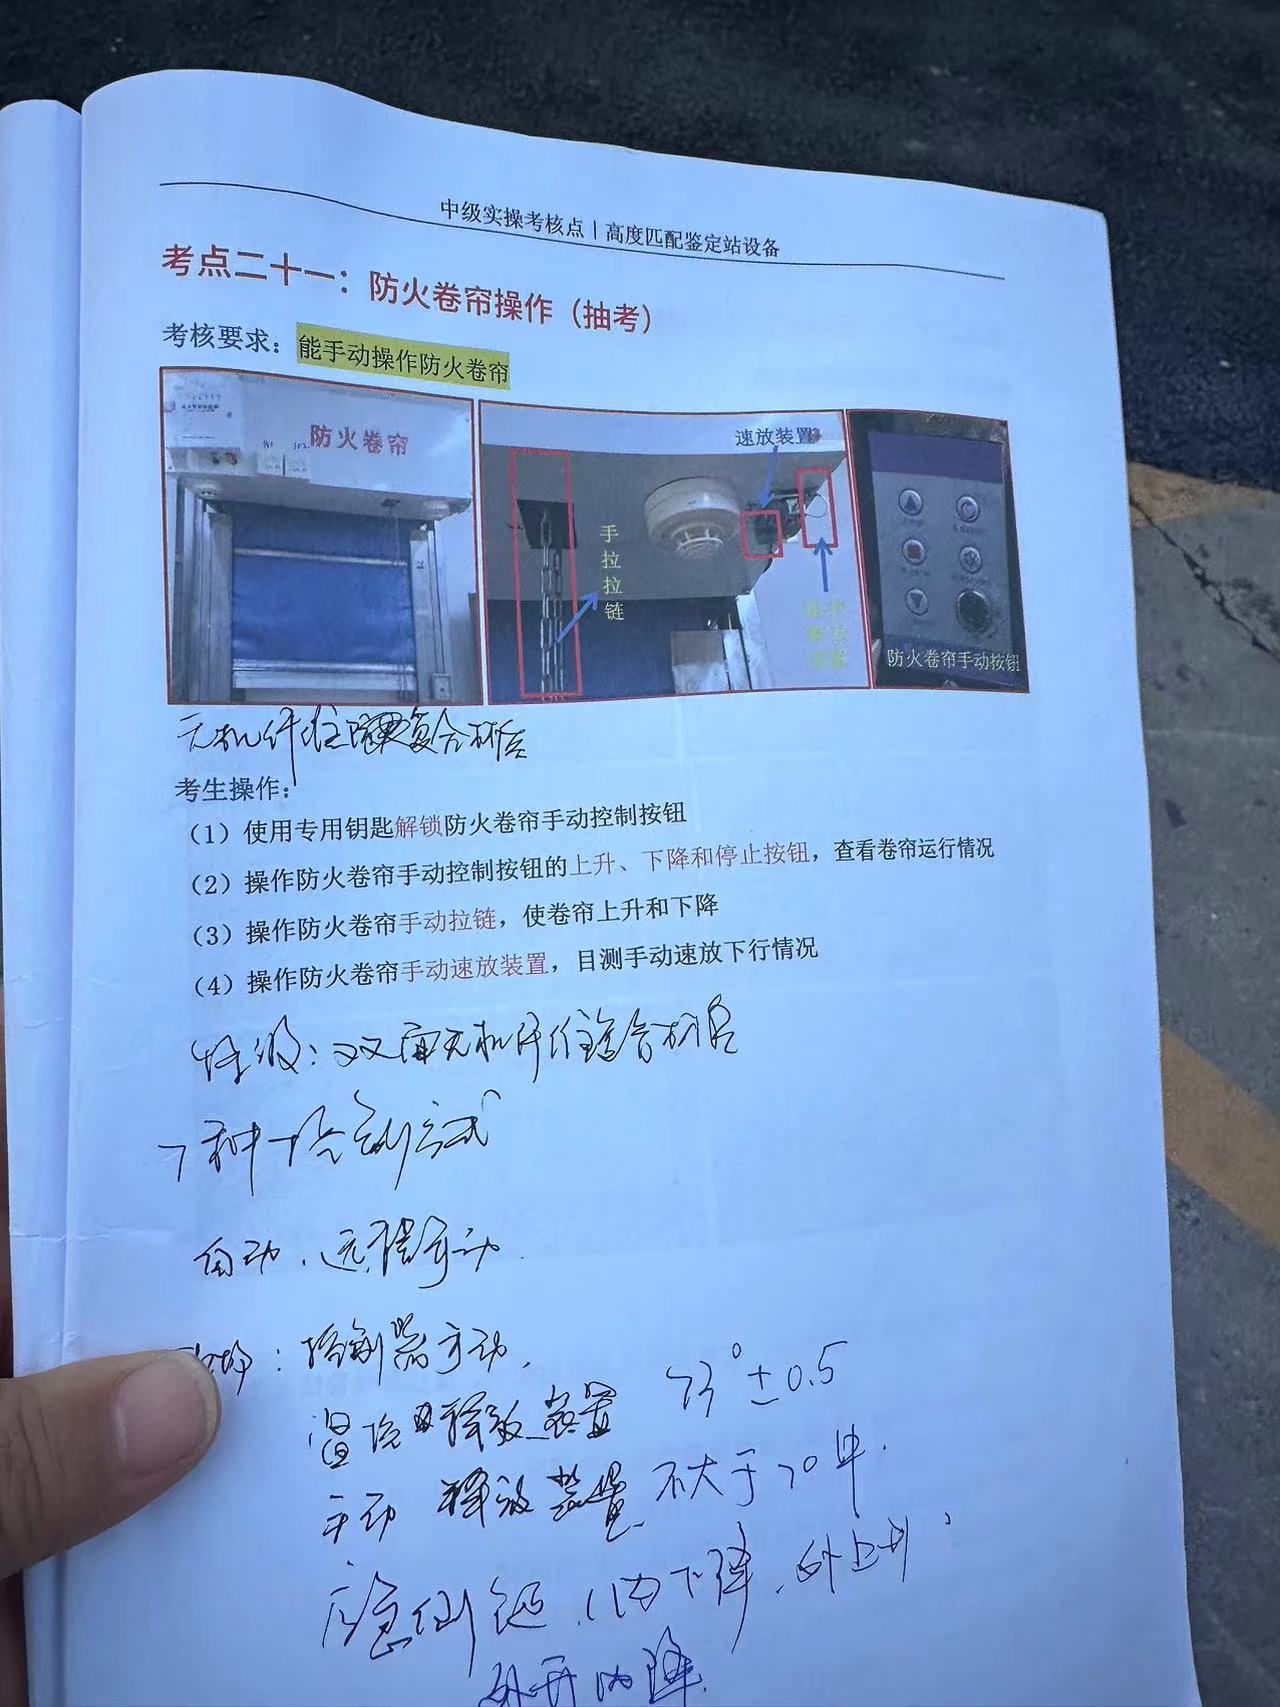 中级实操考核点|高度匹配鉴定站设备
考点二十一：防火卷帘操作（抽考）
考核要求：能手动操作防火卷帘
防火卷帘
速放装置
手拉拉链
防火卷帘手动按钮
无机纤维复合材质
考生操作：
（1）使用专用钥匙解锁防火卷帘手动控制按钮
（2）操作防火卷帘手动控制按钮的上升、下降和停止按钮，查看卷帘运行情况
（3）操作防火卷帘手动拉链，使卷帘上升和下降
（4）操作防火卷帘手动速放装置，目测手动速放下行情况
特级：双面无机纤维复合材质
7种控制方式
自动、远程手动
：控制器手动、
温控释放装置 73°±0.5
手动 释放装置 不大于70牛.
应急 内下降、外上升
外升内降.